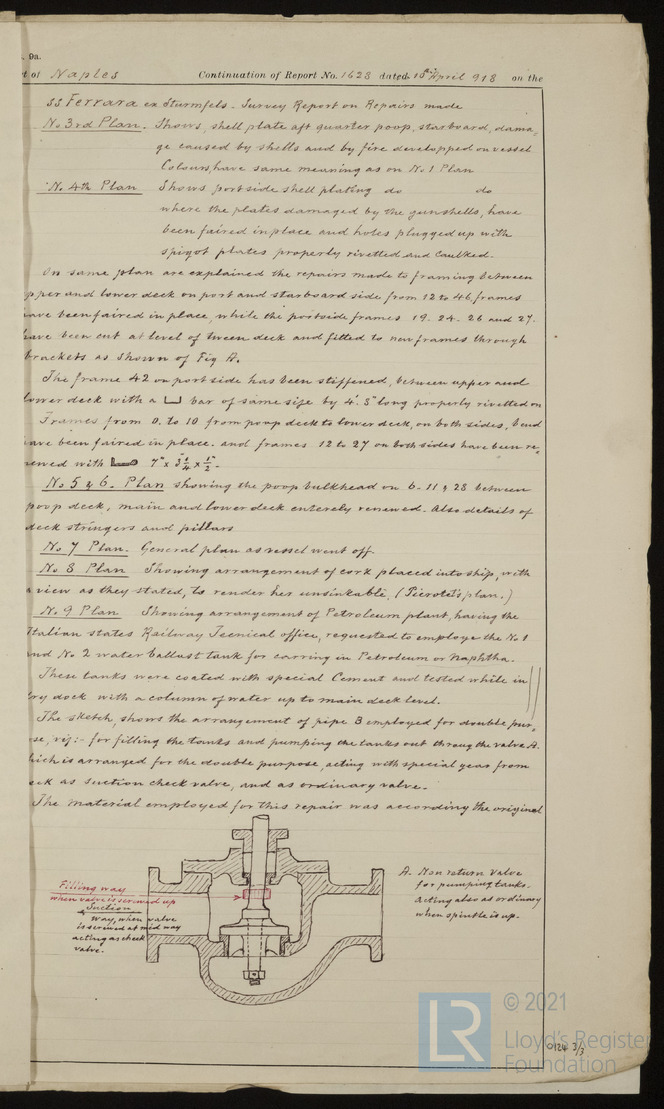 9a.
t of Naples Continuation of Report No. 1628 dated 15th April 918 on the
SS Ferrara ex Sturmfels - Survey Report on Repairs made
No 3rd Plan. Shows, shell plate aft quarter poop, starboard, dama,
ge caused by shells and by fire developped on vessel
Colours, have same meaning as on No 1 Plan
No. 4th Plan Shows port side shell plating do do
where the plates damaged by the gunshells, have
been faired in place and holes plugged up with
spigot plates properly rivetted and caulked.
On same plan are explained the repairs made to framing between
pper and lower deck on port and starboard side from 12 to 46, frames
have been faired in place, while the portside frames 19-24-26 and 27.
have been cut at level of tween deck and fitted to new frames through
brackets as shown of Fig A.
The frame 42 on port side has been stiffened, between upper and
lower deck with a bar of same size by 4'. 3" long properly rivetted on
Frames from 0. to 10 from poop deck to lower deck, on both sides, bend
have been faired in place. and frames 12 to 27 on both sides have been re,
newed with 7" x 3 1/4" x 1/2" -
No 5 & 6. Plan showing the poop bulkhead on 6-11 & 28 between
poop deck, main and lower deck enterely renewed. Also details of
deck stringers and pillars
No 7 Plan. General plan as vessel went off.
No 8 Plan Showing arrangement of cork placed into ship, with
a view as they stated, to render her unsinkable. (Pierote's plan.)
No 9 Plan Showing arrangement of Petroleum plant, having the
Italian states Railway Tecnical office, requested to employe the No 1
and No 2 water ballast tank for carring in Petroleum or Naphtha.
These tanks were coated with special Cement and tested while in
dry dock with a column of water up to main deck level.
The sketch, shows the arrangement of pipe B employed for double pur,
se, viz:- for filling the tanks and pumping the tanks out throug the valve A.
hich is arranged for the double purpose, acting with special gear from
eck as suction check valve, and as ordinary valve.-
The material employed for this repair was according the original
Filling way
when valve is screwed up
Suction
way, when valve
is screwed at mid way
acting as check
valve.-
A. Non return valve
for pumping tanks.
acting also as ordinary
when spindle is up.-
LR © 2021
Lloyd's Register
Foundation
0124 3/3